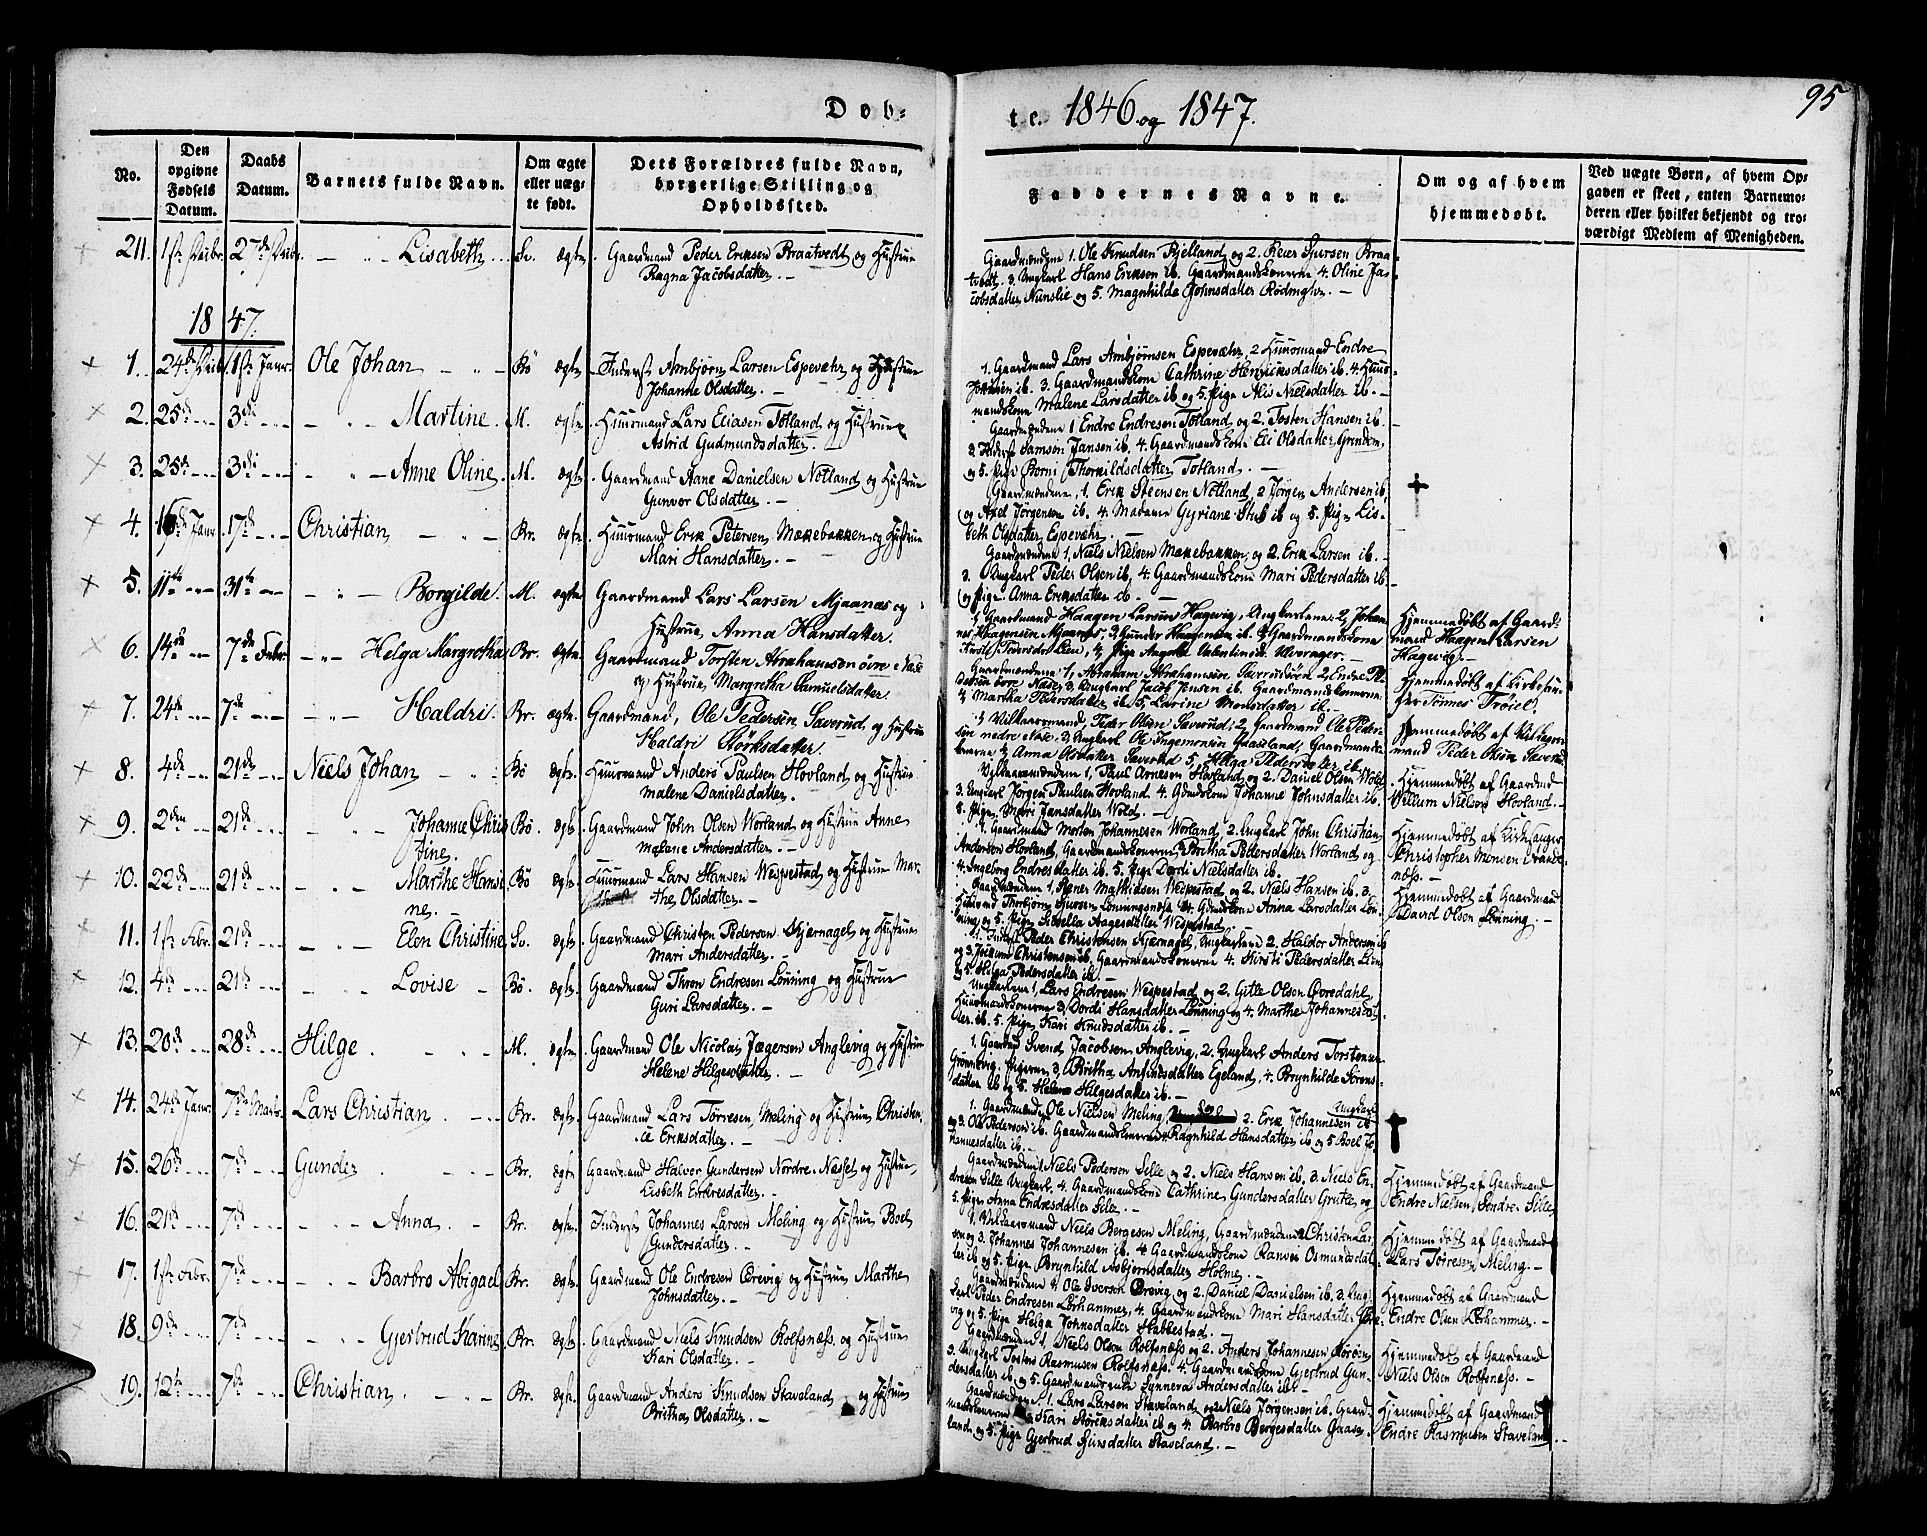 Døb-
te. 1846 og 1847.
95
No.
Den opgivne Fødsels Datum.
Daabs Datum.
Barnets fulde Navn.
Om ægte eller uægte født.
Dets Forældres fulde Navn, borgerlige Stilling og Opholdssted.
Faddernes Navne.
Om og af hvem hjemmedøbt.
Ved uægte Børn, af hvem Op-
gaven er skeet, enten Barnemo-
deren eller hvilket bekjendt og tro-
værdigt Medlem af Menigheden.
211. 27de Lisabeth ægte. Gaardmand Peder Eriksen Braatvedt og Hustrue
Ragna Jacobsdatter. —
Gaardmændene 1. Ole Knudsen Bjelland og 2. Reier Sjursen Braa-
tvedt. 3. Ungkarl Hans Eriksen ib. Gaardmandskonerne 4. Oline Ja-
cobsdatter og 5. Magnhilde Johnsdatter
1847.
1. 24de 1ste Janr. Ole Johan Bø ægte Inderst Arnbjørn Larsen Espevæhr og Hustrue
Johanne Olsdatter.
1. Gaardmand Lars Arnbjørnsen Espevæhr, 2 Huusmand Endre
ib. 3. Gaardmandskone Cathrine Henricksdatter ib. 4. Huus-
mandskone Malene Larsdatter ib og 5. Pige Alis Nielsdatter ib. —
2. 25de 3die Martine. M. ægte Huusmand Lars Eliasen Totland og Hustrue
Astrid Gudmundsdatter. —
Gaardmændene 1 Endre Endresen Totland og 2. Tosten Hansen ib.
3 Inderst Samson Jansen ib. 4. Gaardmandskone Eli Olsdatter Grindem,
og 5. Pige Borni Thorkildsdatter Totland. —
3. 25de 3die Anne Oline. M. ægte. Gaardmand Aane Danielsen Notland og Hustrue
Gunvor Olsdatter. —
Gaardmændene, 1. Erik Steensen Notland, 2 Jørgen Andersen ib,
og Axel Jørgensen ib. 4. Madame Gyriane Stub ib og 5. Pige Lis-
beth Olsdatter Espevæhr. —
4. Janr. 17de Christian Br. ægte. Huusmand Erik Petersen Møkebakken og Hustrue
Mari Hansdatter. —
Gaardmændene 1. Niels Nielsen Møkebakken, og 2. Erik Larsen ib. —
3. Ungkarl Peder Olsen ib, 4. Gaardmandskone Mari Pedersdatter ib
og Pige Anna Eriksdatter ib. —
5. 11te 31te Borgilde. M. ægte. Gaardmand Lars Larsen Mjaanæs og
Hustrue, Anna Hansdatter.
1, Gaardmand Haagen Larsen Hagevig, Ungkarlene 2, Johan-
nes Haagensen Mjaanæs, 3, Gunder Haagensen ib. Gaardmandskone
Hjemmedøbt af Gaard-
mand Haagen Larsen
Hagevig. —
6. 14de 7de Febr. Helga Margretha Br. ægte. Gaardmand Torsten Abrahamsen øvre Næse
og Hustrue, Margretha Samuelsdatter.
Gaardmændene 1, Abraham Abrahamsen 2, Endre Pe-
dersen øvre Næse, 3, Ungkarl Jacob Jensen ib. Gaardmandskonerne
4, Martha Pedersdatter ib. 5, Larine Monsdatter ib. —
Hjemmedøbt af Kirkesan-
ger Tønnes Trøiel?
7. 24de 7de Haldri. Br. ægte. Gaardmand, Ole Pedersen Saverud, og Hustrue
Haldri Størksdatter.
1, Vilkaarsmand, Peder Olsen Saverud, 2, Gaardmand Ole Peder-
sen nedre Næse, 3, Ungkarl Ole Ingemorsen Gaasland, Gaardmands-
konerne 4, Anna Olsdatter Saverud 5, Helga Pedersdatter ib.
Hjemmedøbt af
mand Peder Olsen Saverud
8. 4de 21de Niels Johan Bø ægte. Huusmand Anders Paulsen Hovland og Hustrue
Malene Danielsdatter.
Vilkaarsmændene 1, Paul Arnesen Hovland og 2. Daniel Olsen Wold
3. Ungkarl Jørgen Paulsen Hovland. 4. Gdmdskone Johanne Johnsdatter ib.
Pige Mari Jansdatter Wold. —
Hjemmedøbt af Gaardmd
Willum Nielsen Hovland. —
9. 2den 21de Johanne Chris-
tine. Bø. ægte. Gaardmand John Olsen Worland og Hustrue Anne
Malene Andersdatter. —
1. Gaardmand Morten Johannesen Worland, 2. Ungkarl John Christian
Andersen Hovland, Gaardmandskonerne 3. Britha Pedersdatter Worland og
4. Ingeborg Endresdatter ib. 5. Pige Dordi Nielsdatter ib.
Hjemmedøbt af Kirkesanger
Christopher Monsen
10. 22de 21de Marthe Hansi-
ne. — Bø ægte. Huusmand Lars Hansen Wespestad og Hustrue Mar-
the Olsdatter. —
Gaardmændene 1, Reier Mathiasen Wespestad og 2. Niels Hansen ib. 3.
Huusmd Thorbjørn Sjursen Lønningsnæss 4. Gdmdskone Anna Larsdatter Løn-
ning og 5. Pige Siselle Aagesdatter Wespestad
Hjemmedøbt af Gaardmand
David Olsen Lønning. —
11. 1ste Febr. 21de Elen Christine. Sv. ægte. Gaardmand Christen Pedersen Skjernagel og Hustrue
Mari Andersdatter. —
1. Inderst Peder Christensen Skjernagel, Ungkarlene 2. Haldor Andersen ib
og 3. Joakum Christensen ib, Gaardmandskonerne 4. Kirsti Pedersdatter
og 5. Helga Pedersdatter ib. —
12. 4de 21de Lovise Bø. ægte. Gaardmand Thron Endresen Lønning og Hustrue
Guri Larsdatter. —
Ungkarlene 1, Lars Endresen Wespestad og 2. Gitle Olsen Øvredahl,
Huusmandskonerne 3, Dordi Hansdatter Lønning og 4. Marthe Johannesdat-
ter ib. 5. Pige Kari Knudsdatter ib. —
13. 20de 28de Hilge. M. ægte. Gaardmand Ole Nicolai Jægersen Anglevig og Hustrue
Helene Hilgesdatter. —
1. Gaardmd Svend Jacobsen Anglevig, 2. Ungkarl Anders Torstensen
Grønnevig. Pigerne 3, Britha Anfindsdatter Egeland, 4. Brynhilde Sørens-
datter ib og 5. Helene Hilgesdatter ib. —
14. 24de Janr. 7de Marts. Lars Christian Br. ægte. Gaardmand Lars Torresen Meling og Hustrue Christen-
ce Eriksdatter. —
1. Gaardmand Ole Nielsen Meling, 2. Erik Johannesen ib Ungkarl
og 3. Ole Pederson ib. Gaardmandskonerne 4. Ragnhild Hansdatter ib og 5 Boel Jo-
hannesdatter ib. —
15. 26de 7de Gunder. Br. ægte. Gaardmand Halvor Gundersen Nordre-Næsset og Hustrue
Lisbeth Endresdatter. —
Gaardmændene 1 Niels Pedersen Sille og 2. Niels Hansen ib. 3. Niels En-
dresen Sille Ungkarl. 4. Gaardmandskone Cathrine Gundersdatter Grutle og
5. Pige Anna Endresdatter Sille. —
Hjemmedøbt af Gaardmand
Endre Nielsen Søndre-Sille
16. 21de 7de Anna. Br. ægte. Inderst Johannes Larsen Meling og Hustrue Boel
Gundersdatter. —
1. Vilkaarsmand Niels Bergesen Meling, Gaardmændene 2 Christen Lar-
sen og 3. Johannes Johannesen ib. 4 Gaardmandskone Ranvei Osmundsdat-
ter ib og 5. Pige Brynhild Asbjørnsdatter Holme. —
Hjemmedøbt af Gaardmand
Lars Tørresen Meling. —
17. 1ste Febr. 7de Barbro Abigael Br. ægte. Gaardmand Ole Endresen Ørevig og Hustrue Marthe
Johnsdatter. —
Gaardmændene 1. Ole Iverson Ørevig og 2. Daniel Danielsen ib. 3. Ung-
karl Peder Endresen Lørhammer, 4. Gaardmandskone Mari Hansdatter Øre-
vig og 5. Pige Helga Johnsdatter Habbestad. —
Hjemmedøbt af Gaardmand
Endre Olsen Lørhammer. —
18. 9de 7de Gjertrud Karine Br. ægte. Gaardmand Niels Knudsen Rolfsnæss. og Hustrue
Kari Olsdatter. —
Gaardmændene 1. Niels Olson Rolfsnæss og 2. Anders Johannesen
3. Ungkarl Tosten Rasmusen Rolfsnæss. 4. Gaardmandskone Gjertrud Gun-
dersdatter ib og 5. Gaardmandsenke Synneva Andersdatter ib. —
Hjemmedøbt af Gaardmand
Niels Olsen Rolfsnæss. —
19. 12te 7de Christian. Br. ægte. Gaardmand Anders Knudsen Staveland og Hustrue
Britha Olsdatter. —
Gaardmændene 1. Lars Larsen Staveland og 2 Niels Jørgensen ib. Gaard-
mandskonerne 3. Kari Størksdatter ib og 4. Barbro Bergesdatter Gaase-
land og 5. Pige Gjertrud Sjursdatter Staveland. —
Hjemmedøbt af Gaardmand
Endre Rasmusen Staveland. —